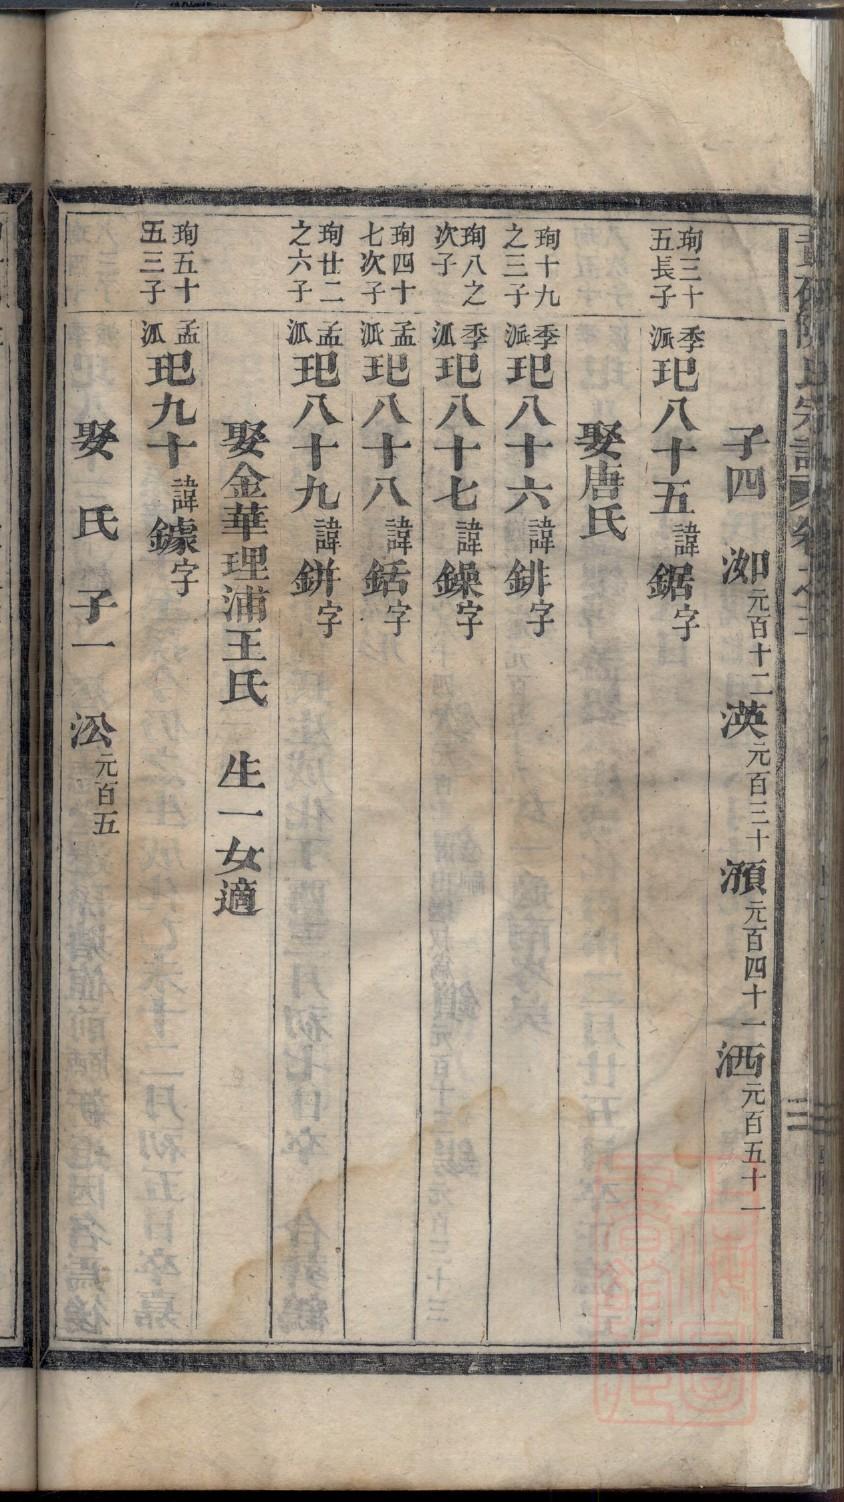 子四 洳元百十二 渶元百三十 澦元百四十一 洒元百五十一
珣三十五長子
季派 玘八十五 諱鋸字
娶唐氏
珣十九之三子
季派 玘八十六 諱錐字
珣八之次子
季派 玘八十七 諱鐰字
珣四十七次子
孟派 玘八十八 諱銛字
珣廿二之六子
孟派 玘八十九 諱鉼字
娶金華理浦王氏 生一女適
珣五十五三子
孟派 玘九十 諱鐻字
娶 氏 子一 㳂元百五